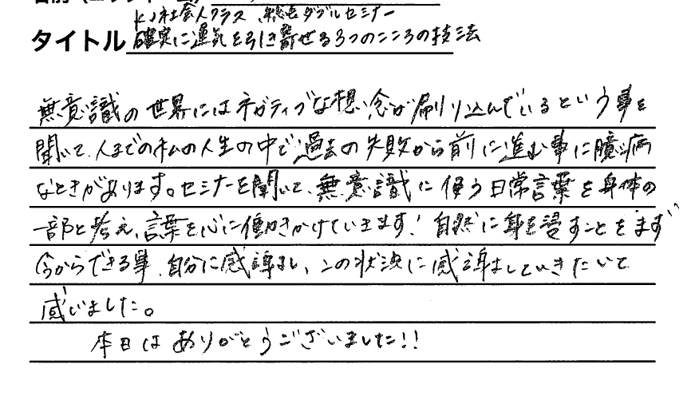 KJ社会人クラス ダブルセミナー
タイトル 確実に運気を引き寄せる3つのこころの技法
無意識の世界にはネガティブな想念が刷り込んでいるという事を
聞いて、今までの私の人生の中で過去の失敗から前に進む事に臆病
なときがあります。セミナーを聞いて、無意識に使う日常言葉を身体の
一部と考え、言葉を心に働きかけていきます! 自然に身を委すことをまず
今からできる事、自分に感謝し、この状況に感謝していきたいと
感じました。
本日はありがとうございました!!